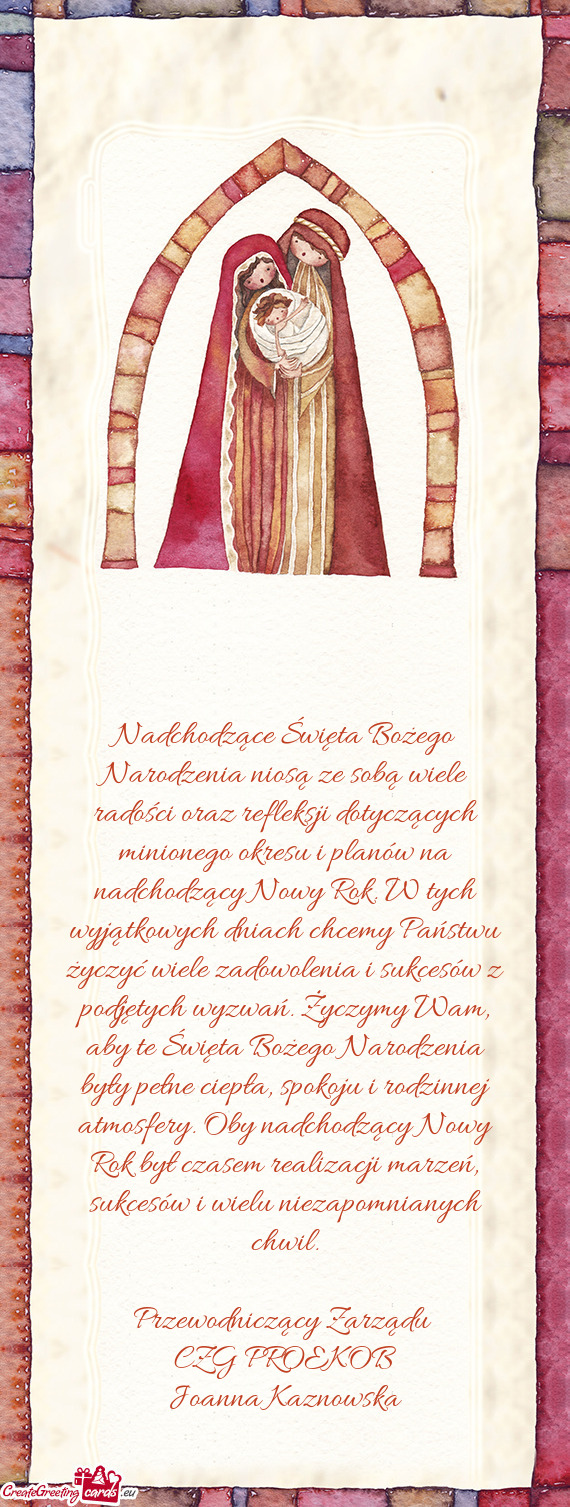 Nadchodzące Święta Bożego
Narodzenia niosą ze sobą wiele
radości oraz refleksji dotyczących
minionego okresu i planów na
nadchodzący Nowy Rok. W tych
wyjątkowych dniach chcemy Państwu
życzyć wiele zadowolenia i sukcesów z
podjętych wyzwań. Życzymy Wam,
aby te Święta Bożego Narodzenia
były pełne ciepła, spokoju i rodzinnej
atmosfery. Oby nadchodzący Nowy
Rok był czasem realizacji marzeń,
sukcesów i wielu niezapomnianych
chwil.
Przewodniczący Zarządu
CZG PROEKOB
Joanna Kaznowska
CreateGreetingcards.eu